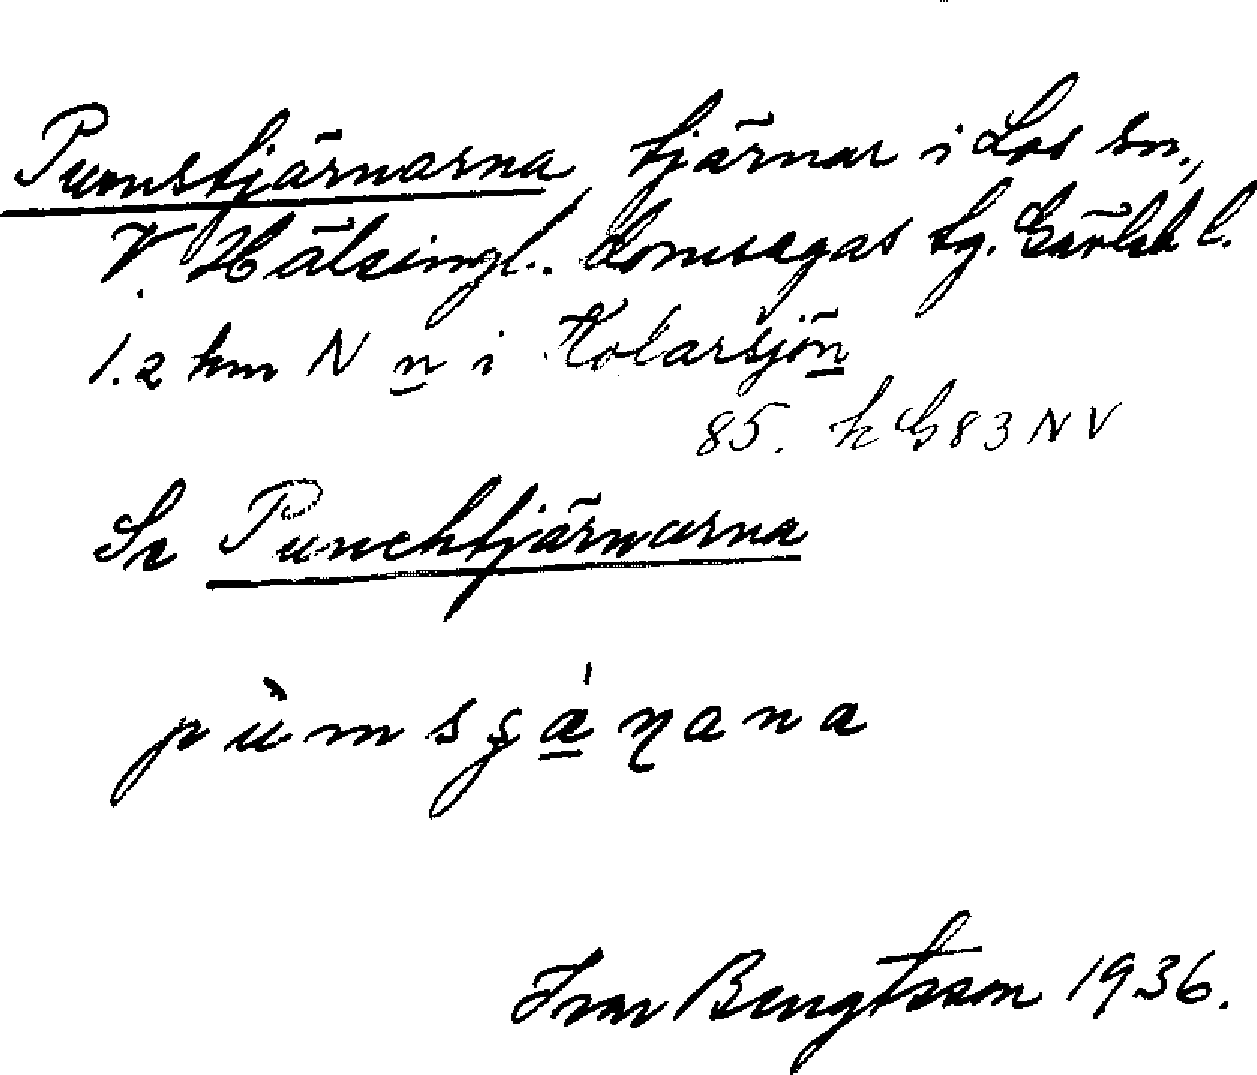 Pumstjärnarna, tjärnar i Los sn.,
V. Hälsingl. domsagas tg. Gävleb l.
1.2 km N n i Kolarsjön
85. k G 83 NV
Se Punchtjärnarna
pùmsʂánana
Ivar Bengtsson 1936.